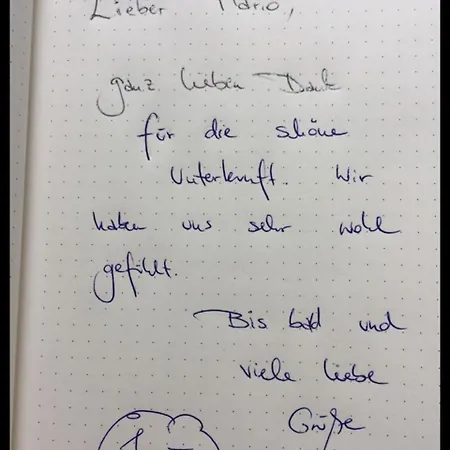 Lieber Mario,
ganz lieben Dank
für die schöne
Unterkunft. Wir
haben uns sehr wohl
gefühlt.
Bis bald und
viele liebe
Grüße